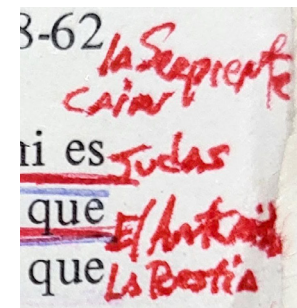 8-62
la Serpiente
Cain
ni es Judas
que El Antcris
que La Bestia